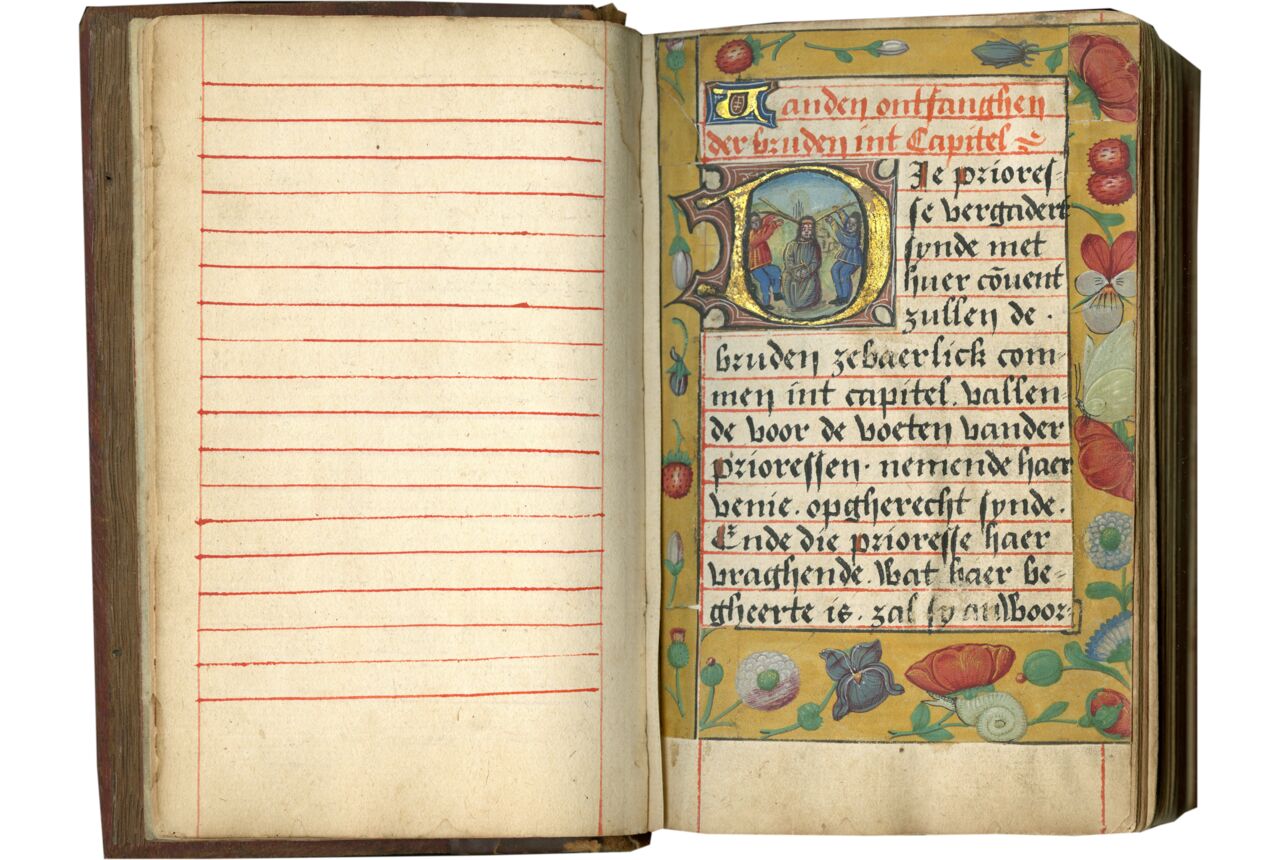 Vanden ontfanghen
der bruden int Capitel
DJe priores-
se vergadert
synde met
huer cōuent
zullen de .
bruden zebaerlick com-
men int capitel. vallen-
de voor de voeten vander
prioressen. nemende haer
venie. opgherecht synde.
Ende die prioresse haer
vraghende. Wat haer be-
gheerte is. zal sy andWoor-